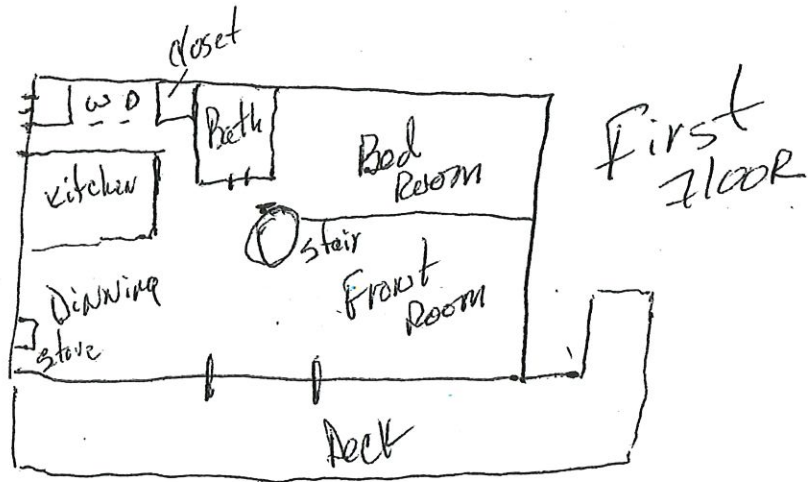 closet
W D
Bath
Bed
Room
First
FlooR
Kitchen
stair
Dinning
Front
Room
stove
Deck